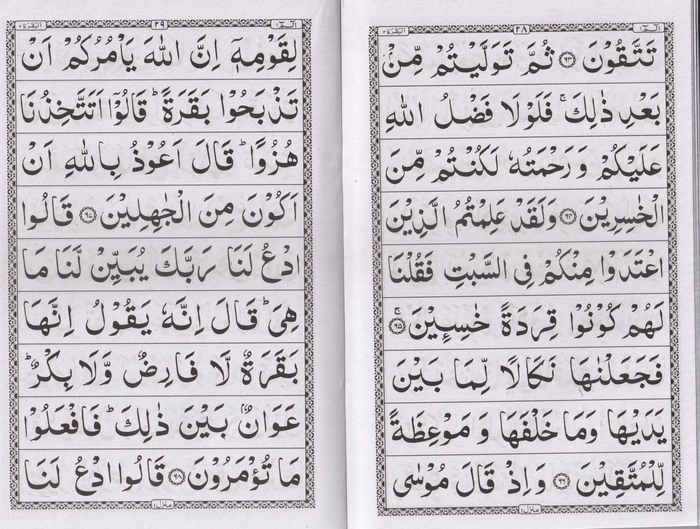 الٓمّٓ ١ ٢٨ البقرة ٢
تَتَّقُوْنَ ﴿۶۳﴾ ثُمَّ تَوَلَّيْتُمْ مِّنْۢ
بَعْدِ ذٰلِكَ ۚ فَلَوْلَا فَضْلُ اللّٰهِ
عَلَيْكُمْ وَرَحْمَتُهٗ لَكُنْتُمْ مِّنَ
الْخٰسِرِيْنَ ﴿۶۴﴾ وَلَقَدْ عَلِمْتُمُ الَّذِيْنَ
اعْتَدَوْا مِنْكُمْ فِى السَّبْتِ فَقُلْنَا
لَهُمْ كُوْنُوْا قِرَدَةً خٰسِـِٕيْنَ ﴿۶۵﴾ ۚ
فَجَعَلْنٰهَا نَكَالًا لِّمَا بَيْنَ
يَدَيْهَا وَمَا خَلْفَهَا وَ مَوْعِظَةً
لِّلْمُتَّقِيْنَ ﴿۶۶﴾ وَاِذْ قَالَ مُوْسٰى
الٓمّٓ ١ ٢٩ البقرة ٢
لِقَوْمِهٖٓ اِنَّ اللّٰهَ يَاْمُرُكُمْ اَنْ
تَذْبَحُوْا بَقَرَةً ؕ قَالُوْٓا اَتَتَّخِذُنَا
هُزُوًا ؕ قَالَ اَعُوْذُ بِاللّٰهِ اَنْ
اَكُوْنَ مِنَ الْجٰهِلِيْنَ ﴿۶۷﴾ قَالُوا
ادْعُ لَنَا رَبَّكَ يُبَيِّنْ لَّنَا مَا
هِىَ ؕ قَالَ اِنَّهٗ يَقُوْلُ اِنَّهَا
بَقَرَةٌ لَّا فَارِضٌ وَّلَا بِكْرٌ ؕ
عَوَانٌۢ بَيْنَ ذٰلِكَ ؕ فَافْعَلُوْا
مَا تُؤْمَرُوْنَ ﴿۶۸﴾ قَالُوا ادْعُ لَنَا